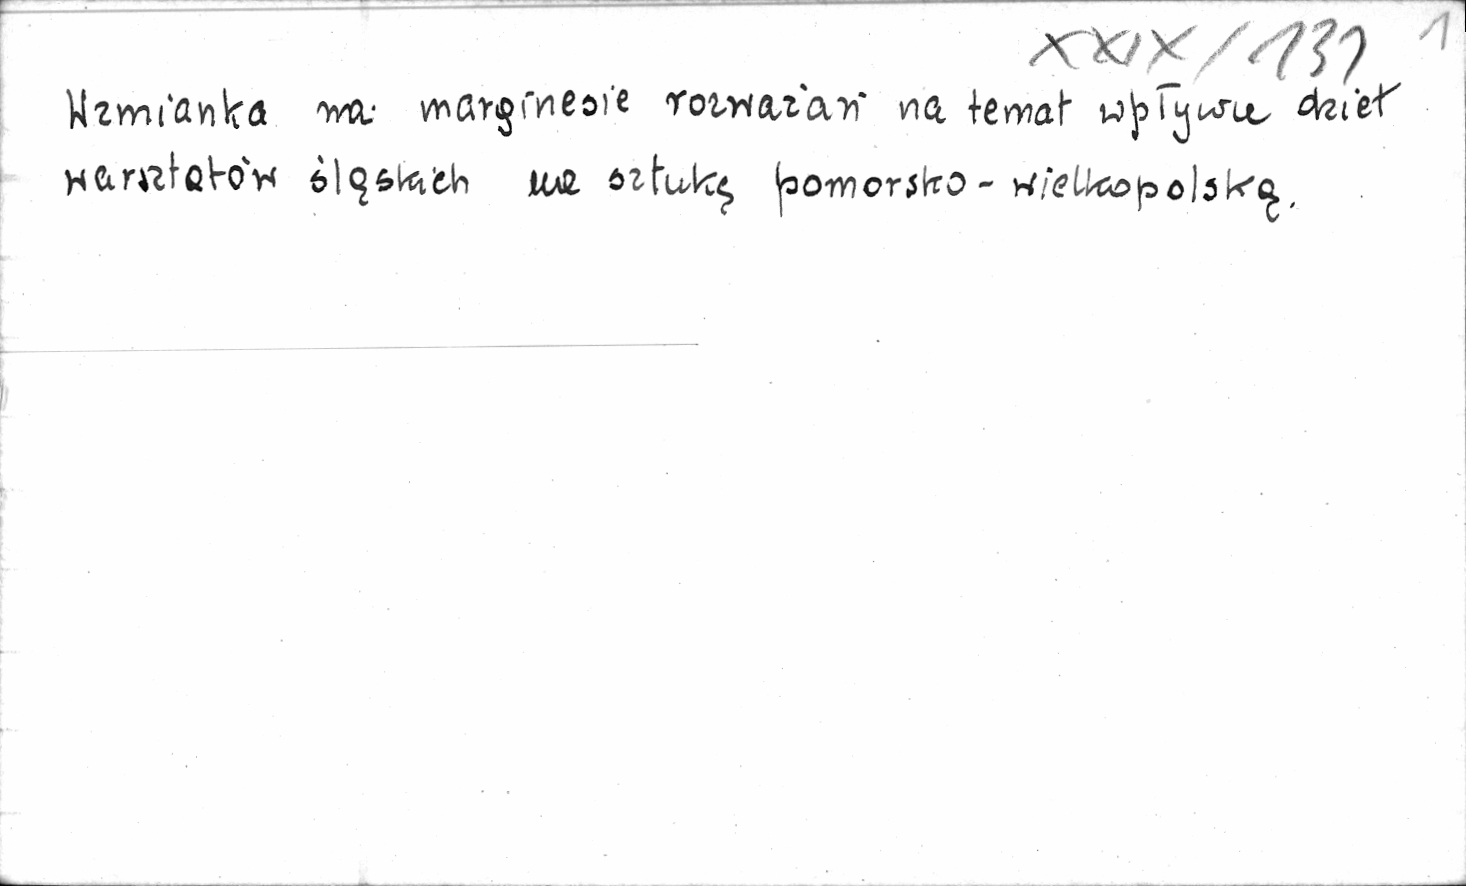 XXIX/131 1
Wzmianka na marginesie rozważań na temat wpływu dzieł
warsztatów śląskich na sztukę pomorsko-wielkopolską.